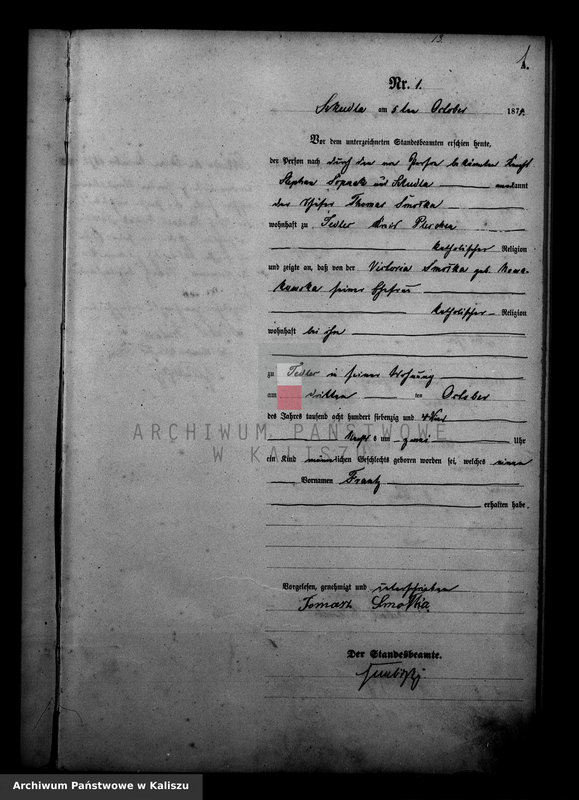 13.
1.
Nr. 1.
Szkudla am 5ten October 1874.
Vor dem unterzeichneten Standesbeamten erschien heute,
der Person nach durch den von Person bekannten Knecht
Stephan aus Szkudla kannt
der Thomas Smolka
wohnhaft zu Tedler Kreis Pleschen
katholischer Religion
und zeigte an, daß von der Victoria Smolka geb.
seiner Ehefrau
katholischer Religion
wohnhaft bei ihm
zu Tedler in seiner Wohnung
am dritten ten October
des Jahres tausend acht hundert siebenzig und vier
Nachts um zwei Uhr
ein Kind männlichen Geschlechts geboren worden sei, welches einen
Vornamen Frantz
erhalten habe.
Vorgelesen, genehmigt und unterschrieben
Tomasz Smolka
Der Standesbeamte.
ARCHIWUM PAŃSTWOWE
W KALISZU
Archiwum Państwowe w Kaliszu